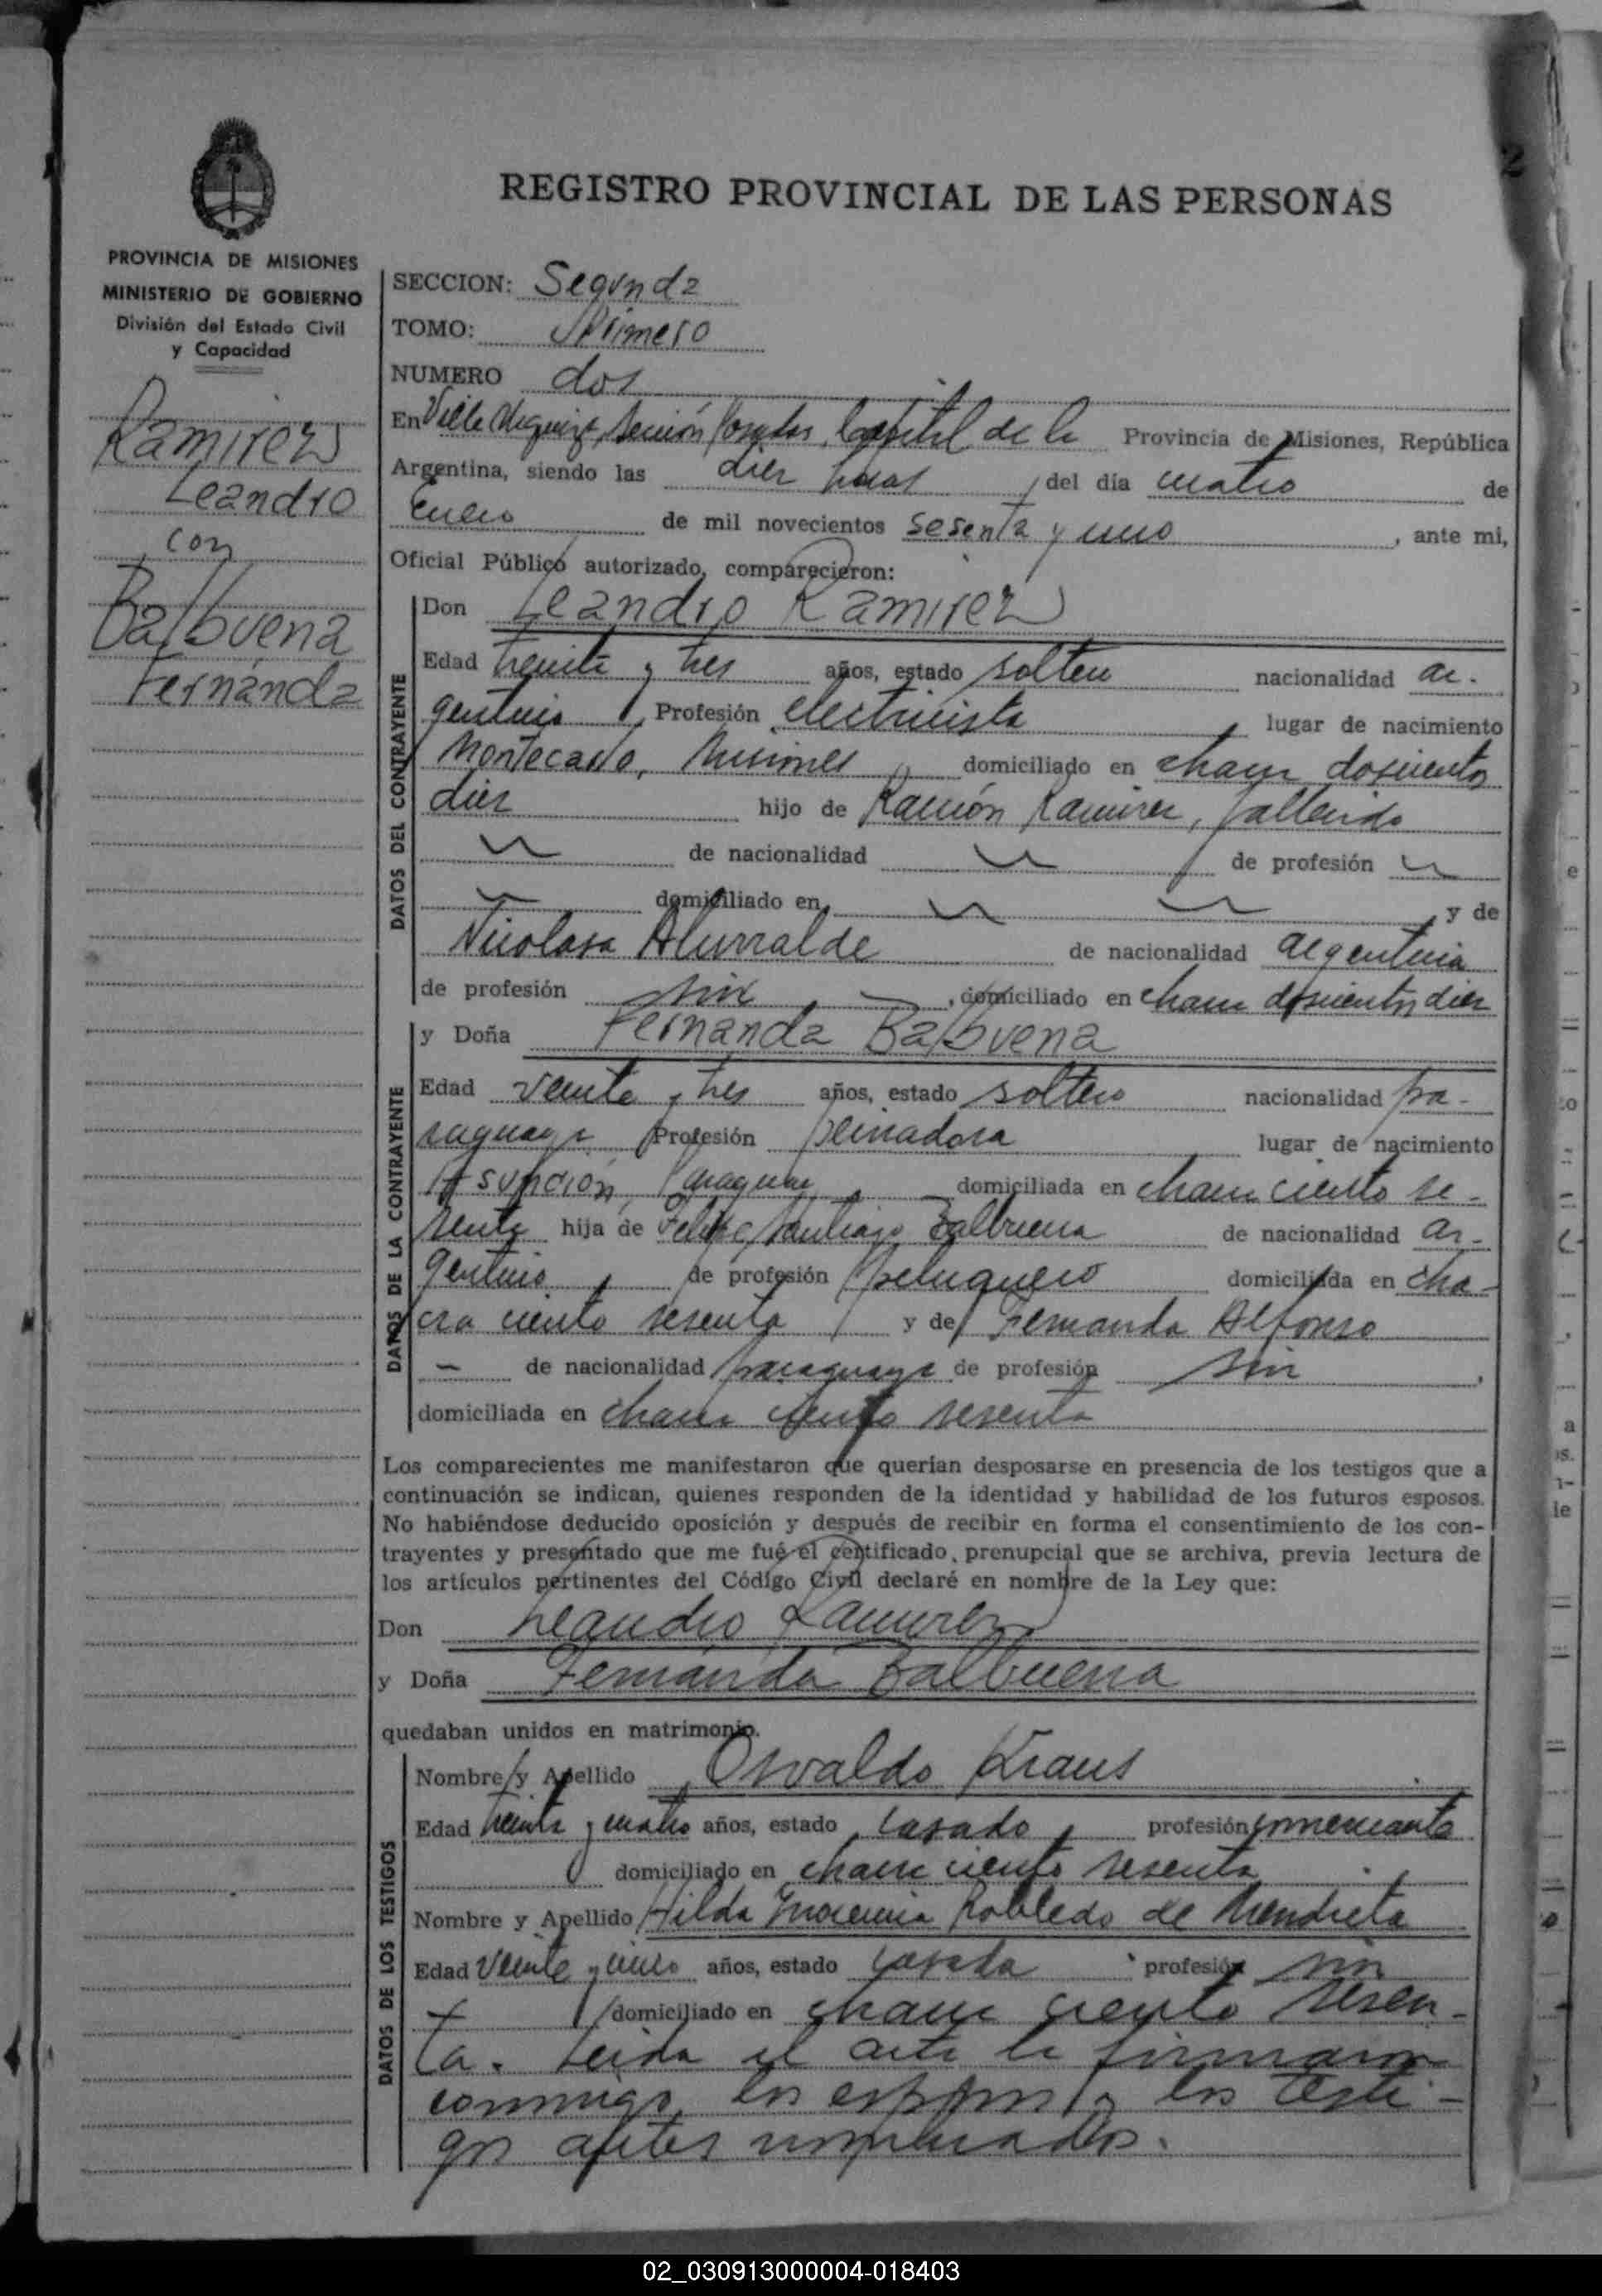 2
REGISTRO PROVINCIAL DE LAS PERSONAS
PROVINCIA DE MISIONES
MINISTERIO DE GOBIERNO
División del Estado Civil
y Capacidad
Ramirez
Leandro
con
Balbuena
Fernanda
SECCION: Segunda
TOMO: Primero
NUMERO dos
En Villa Urquiza, Sección Posadas, Capital de la Provincia de Misiones, República
Argentina, siendo las diez horas del día cuatro de
Enero de mil novecientos sesenta y uno, ante mi,
Oficial Público autorizado, comparecieron:
DATOS DEL CONTRAYENTE
Don Leandro Ramirez
Edad treinta y tres años, estado soltero nacionalidad ar-
gentino, Profesión electricista, lugar de nacimiento
Montecarlo, Misiones, domiciliado en chacra doscientos
diez hijo de Ramón Ramirez, fallecido
de nacionalidad de profesión
domiciliado en, y de
Nicolasa Alurralde de nacionalidad argentina
de profesión sin, domiciliado en chacra doscientos diez
DATOS DE LA CONTRAYENTE
y Doña Fernanda Balbuena
Edad veinte y tres años, estado soltera nacionalidad pa-
raguaya Profesión peinadora lugar de nacimiento
Asunción, Paraguay, domiciliada en chacra ciento se-
senta hija de Felipe Santiago Balbuena de nacionalidad ar-
gentino, de profesión peluquero domiciliada en cha-
cra ciento sesenta y de Fernanda Alfonso
- de nacionalidad paraguaya de profesión sin,
domiciliada en chacra ciento sesenta
Los comparecientes me manifestaron que querían desposarse en presencia de los testigos que a
continuación se indican, quienes responden de la identidad y habilidad de los futuros esposos.
No habiéndose deducido oposición y después de recibir en forma el consentimiento de los con-
trayentes y presentado que me fué el certificado, prenupcial que se archiva, previa lectura de
los artículos pertinentes del Código Civil declaré en nombre de la Ley que:
Don Leandro Ramirez
y Doña Fernanda Balbuena
quedaban unidos en matrimonio.
DATOS DE LOS TESTIGOS
Nombre y Apellido Osvaldo Kraus
Edad treinta y cuatro años, estado casado, profesión comerciante
domiciliado en chacra ciento sesenta
Nombre y Apellido Hilda Robledo de Mendieta
Edad veinte y cinco años, estado casada profesión sin
domiciliado en chacra ciento sesen-
ta. Leida el acta la firmaron
conmigo, los esposos y los testi-
gos antes nombrados.
02_030913000004-018403